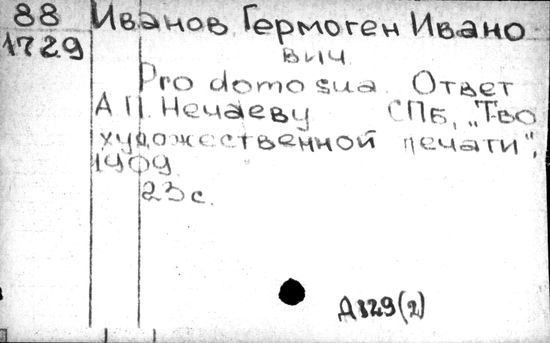 88 Иванов Гермоген Ивано
1729 вич
Pro domo sua. Ответ
А.П. Нечаеву СПБ, „Т-во
художественной печати",
1909.
23 с.
Д829(2)